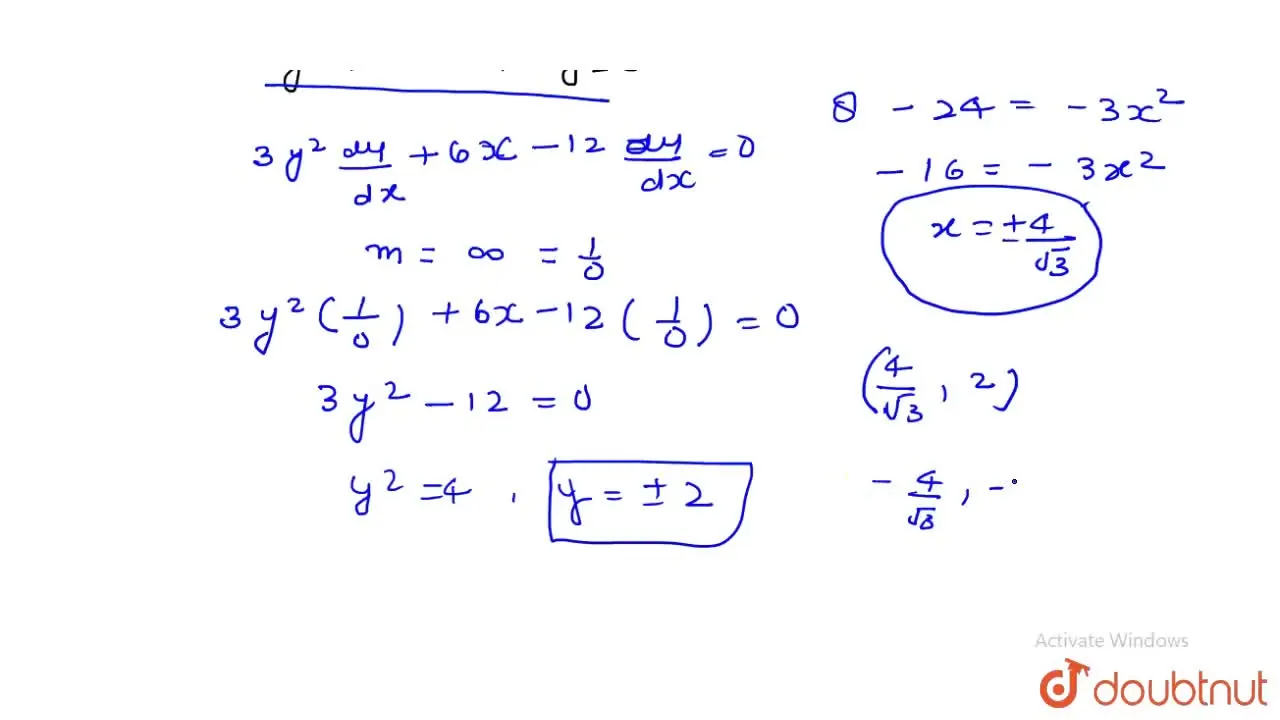 3y² dy/dx + 6x - 12 dy/dx = 0
m = ∞ = 1/0
3y² (1/0) + 6x - 12 (1/0) = 0
3y² - 12 = 0
y² = 4 , y = ± 2
8 - 24 = - 3x²
- 16 = - 3x²
x = ± 4/√3
(4/√3 , 2)
- 4/√3 , -
Activate Windows
doubtnut